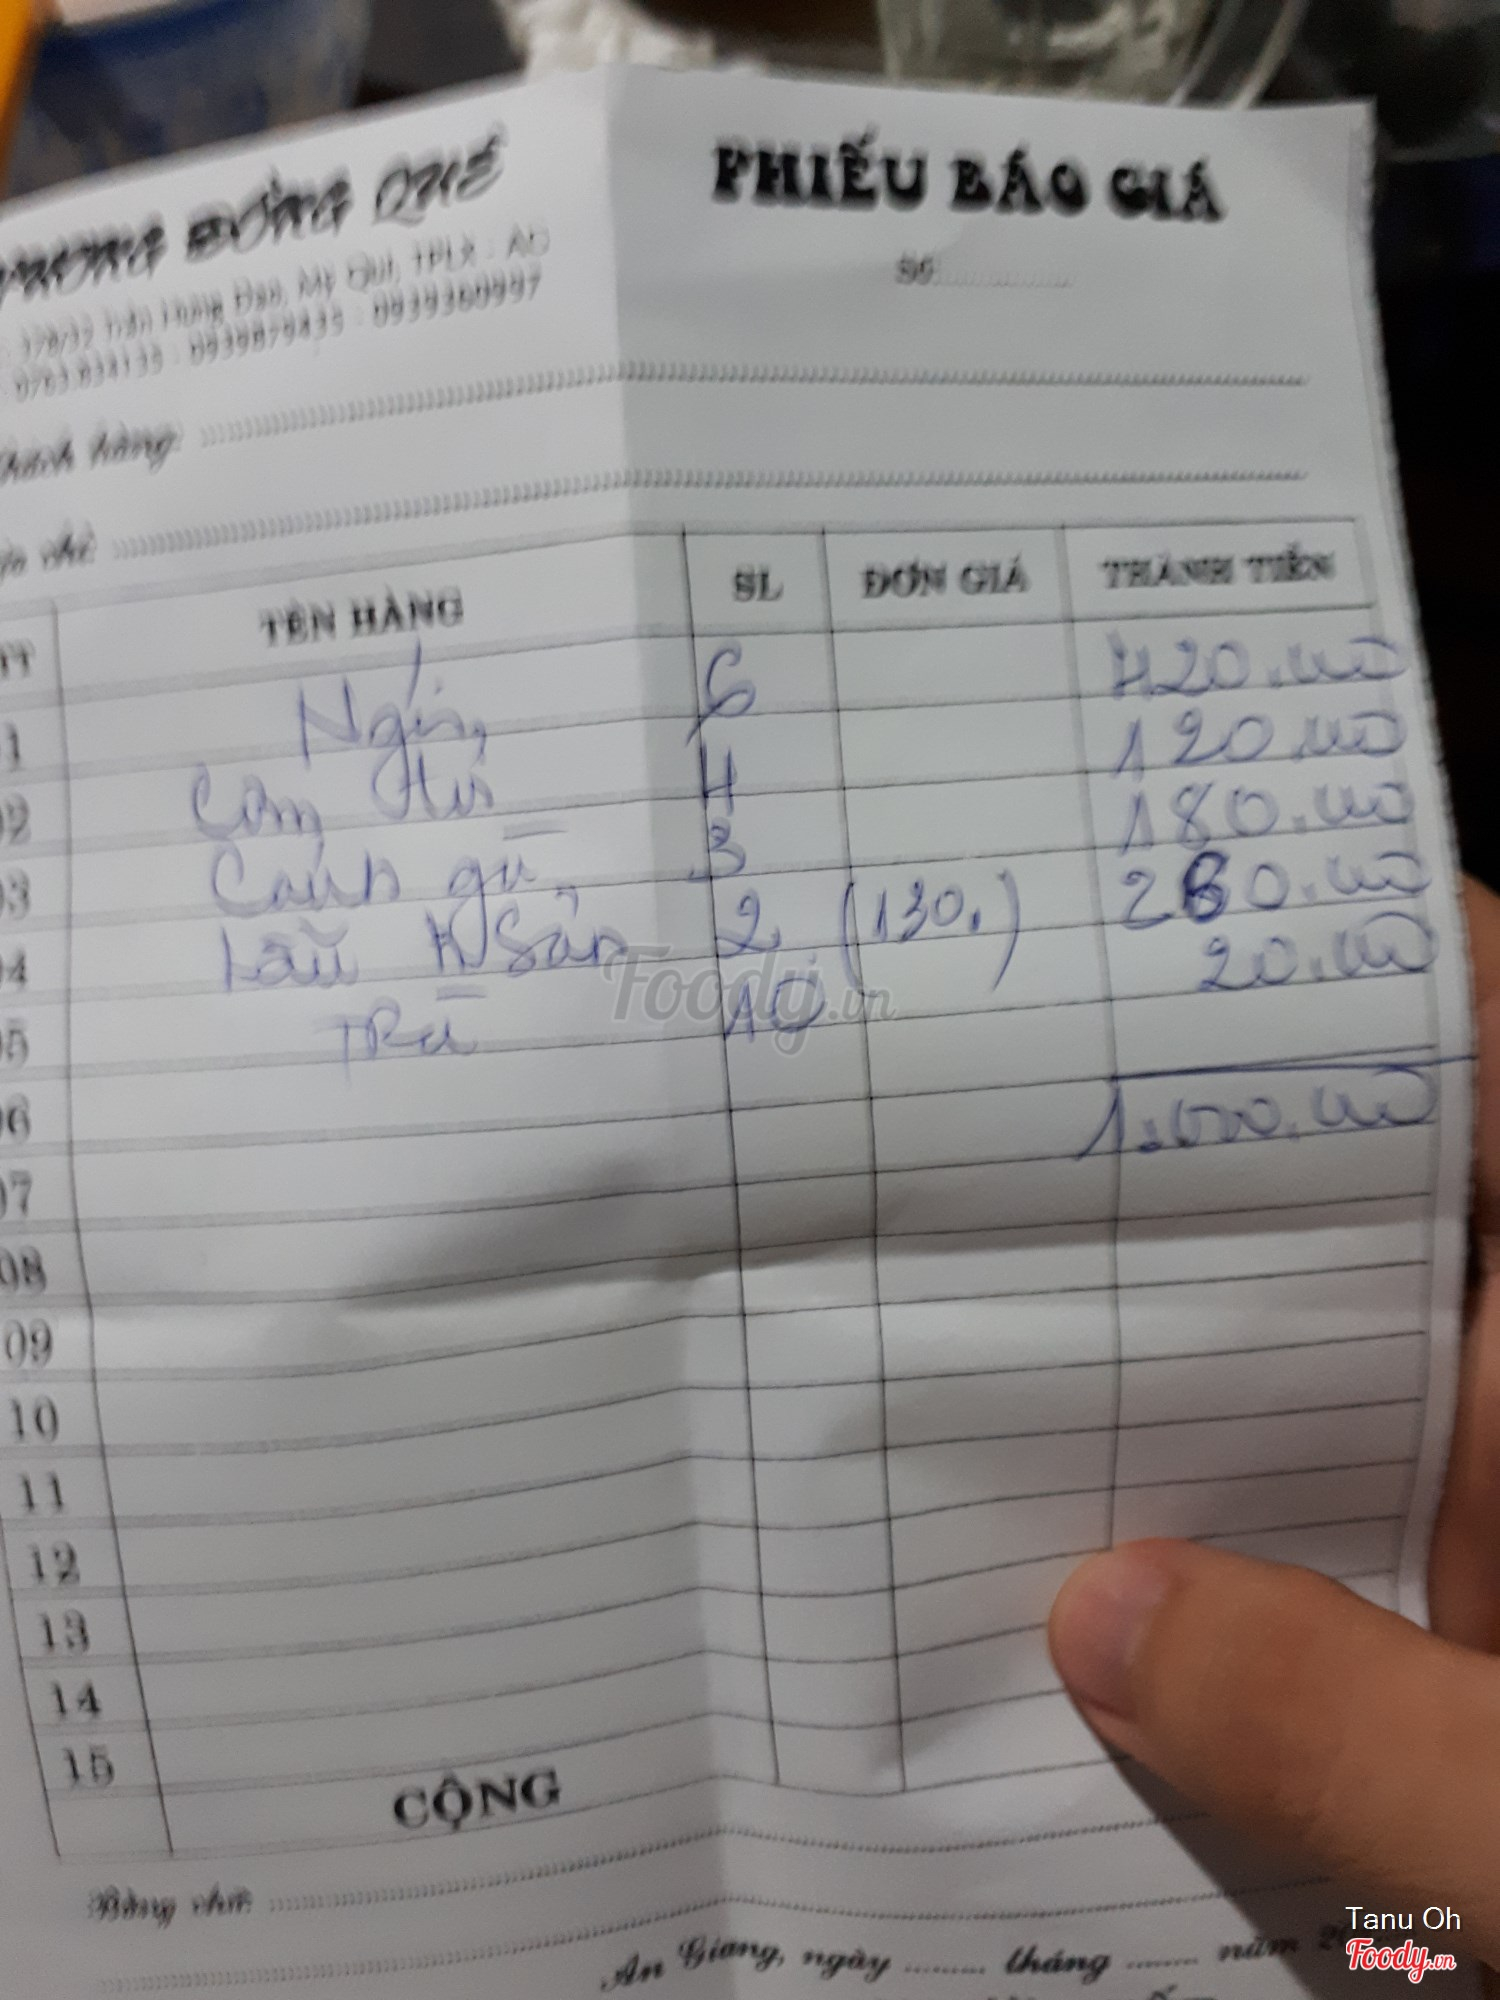 HƯƠNG ĐỒNG QUÊ
PHIẾU BÁO GIÁ
Số
Trần Hưng Đạo, Mỹ Quí, TPLX - AG
0763.834135 - 0939879435 - 0939360997
Khách hàng:
Địa chỉ:
TT TÊN HÀNG SL ĐƠN GIÁ THÀNH TIỀN
01 6 420.000
02 Cơm 4 120.000
03 Canh gà 3 180.000
04 Lẩu H Sản 2 (130.) 260.000
05 Trà 10 20.000
06 1.000.000
07
08
09
10
11
12
13
14
15
CỘNG
Bằng chữ:
An Giang, ngày ........ tháng ........ năm 20
Foody.vn
Tanu Oh
Foody.vn